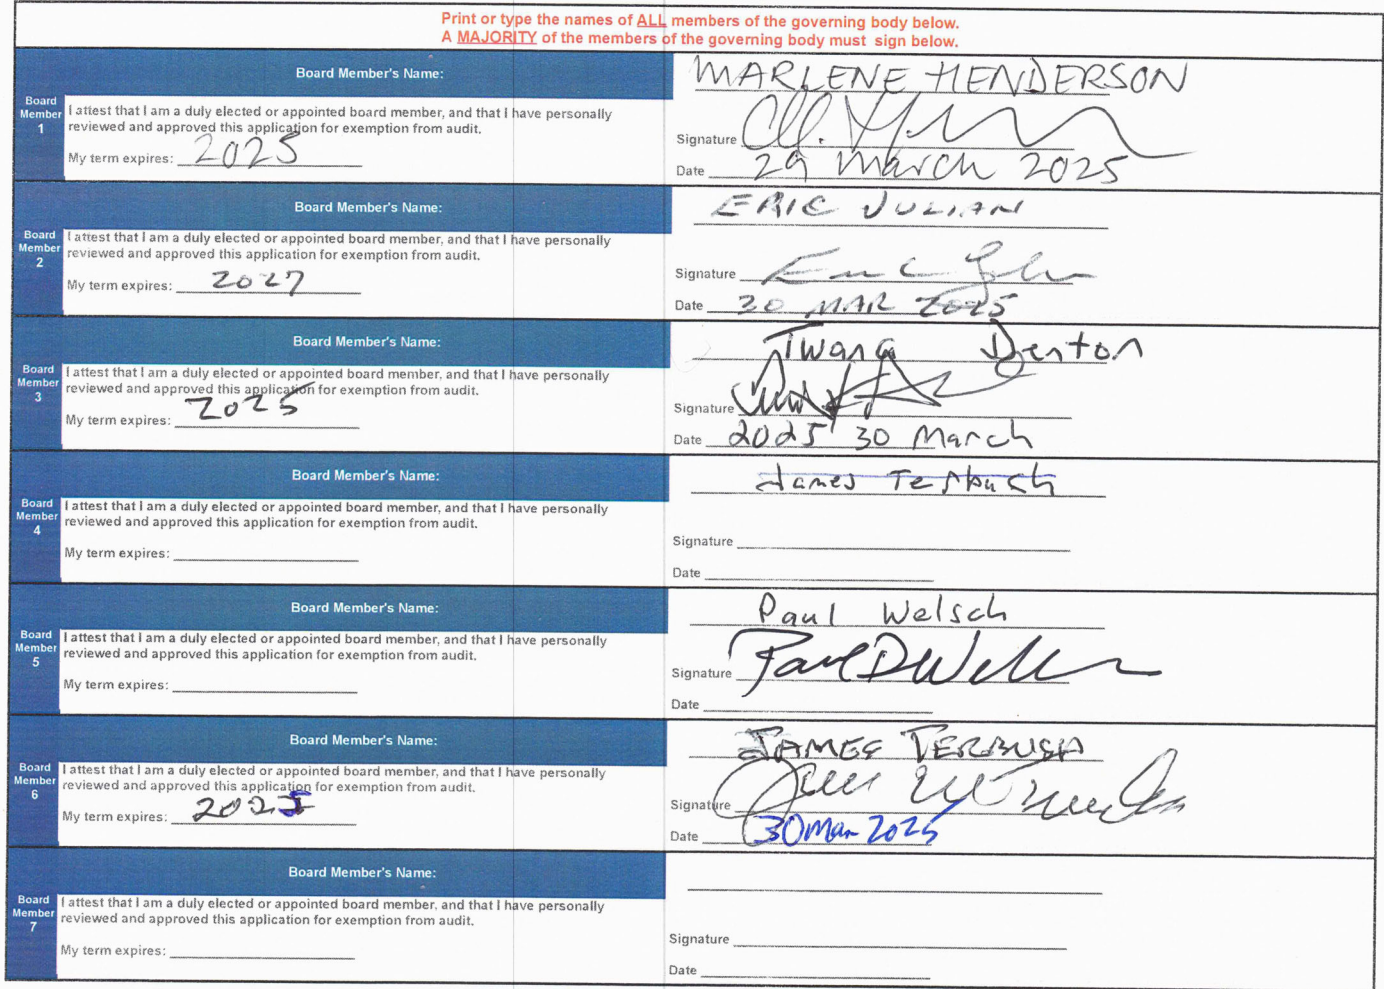 Print or type the names of ALL members of the governing body below.
A MAJORITY of the members of the governing body must sign below.
Board Member's Name:
MARLENE HENDERSON
Board Member 1
I attest that I am a duly elected or appointed board member, and that I have personally
reviewed and approved this application for exemption from audit.
Signature
My term expires: 2025
Date 29 March 2025
Board Member's Name:
ERIC JULIAN
Board Member 2
I attest that I am a duly elected or appointed board member, and that I have personally
reviewed and approved this application for exemption from audit.
Signature
My term expires: 2027
Date 30 MAR 2025
Board Member's Name:
Denton
Board Member 3
I attest that I am a duly elected or appointed board member, and that I have personally
reviewed and approved this application for exemption from audit.
Signature
My term expires: 2025
Date 2025 30 March
Board Member's Name:
James
Board Member 4
I attest that I am a duly elected or appointed board member, and that I have personally
reviewed and approved this application for exemption from audit.
Signature
My term expires:
Date
Board Member's Name:
Paul Welsch
Board Member 5
I attest that I am a duly elected or appointed board member, and that I have personally
reviewed and approved this application for exemption from audit.
Signature
My term expires:
Date
Board Member's Name:
JAMES TERBUSH
Board Member 6
I attest that I am a duly elected or appointed board member, and that I have personally
reviewed and approved this application for exemption from audit.
Signature
My term expires: 2025
Date 30 Mar 2025
Board Member's Name:
Board Member 7
I attest that I am a duly elected or appointed board member, and that I have personally
reviewed and approved this application for exemption from audit.
Signature
My term expires:
Date